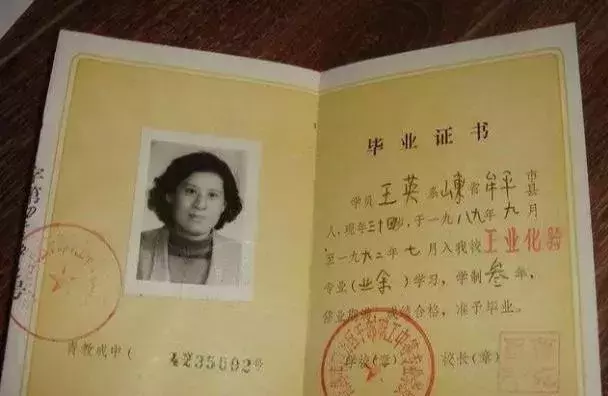 青教成中( 4235692号
毕业证书
学员 王英 系 山東 省 牟平 市县
人,现年三十四岁,于一九八九年九月
至一九九二年七月入我校工业化验
专业(业余)学习,学制叁年,
修业期满,成绩合格,准予毕业。
学校(章) 校长(章)